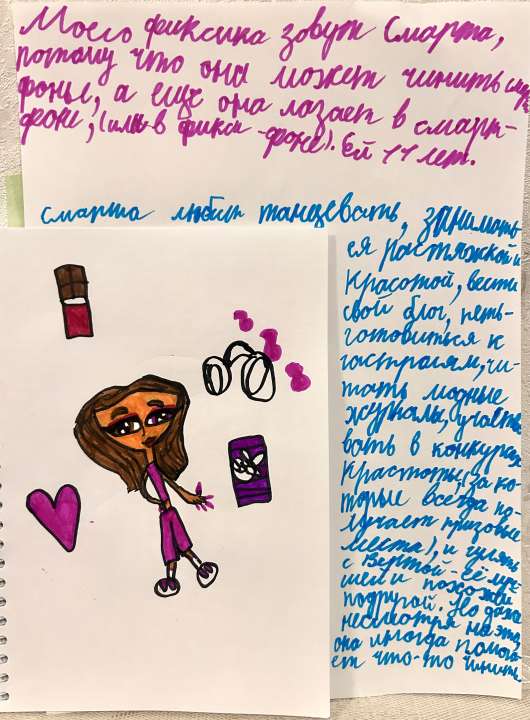 Моего фиксика зовут Смарта,
потому что она может чинить смарт-
фоны, а ещё она лазает в смарт-
фоне, (или в фикси-фоне). Ей 11 лет.
Смарта любит танцевать, занимать-
ся растяжкой и
красотой, вести
свой блог, петь-
готовиться к
гастролям, чи-
тать модные
журналы, участ
вовать в конкурсах
красоты, (за ко-
торые всегда по-
лучает призовые
места), и гулять
с Вертой-её луч-
шей и похожей
подругой. Но даже
несмотря на это,
она иногда помога-
ет что-то чинить.